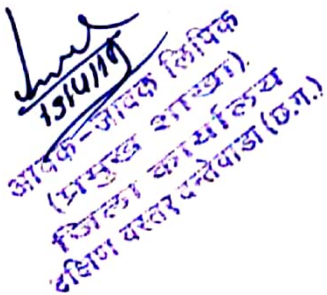 13/4/18
आवक-जावक लिपिक
(प्रमुख शाखा)
जिला कार्यालय
दक्षिण बस्तर दन्तेवाडा (छ.ग.)